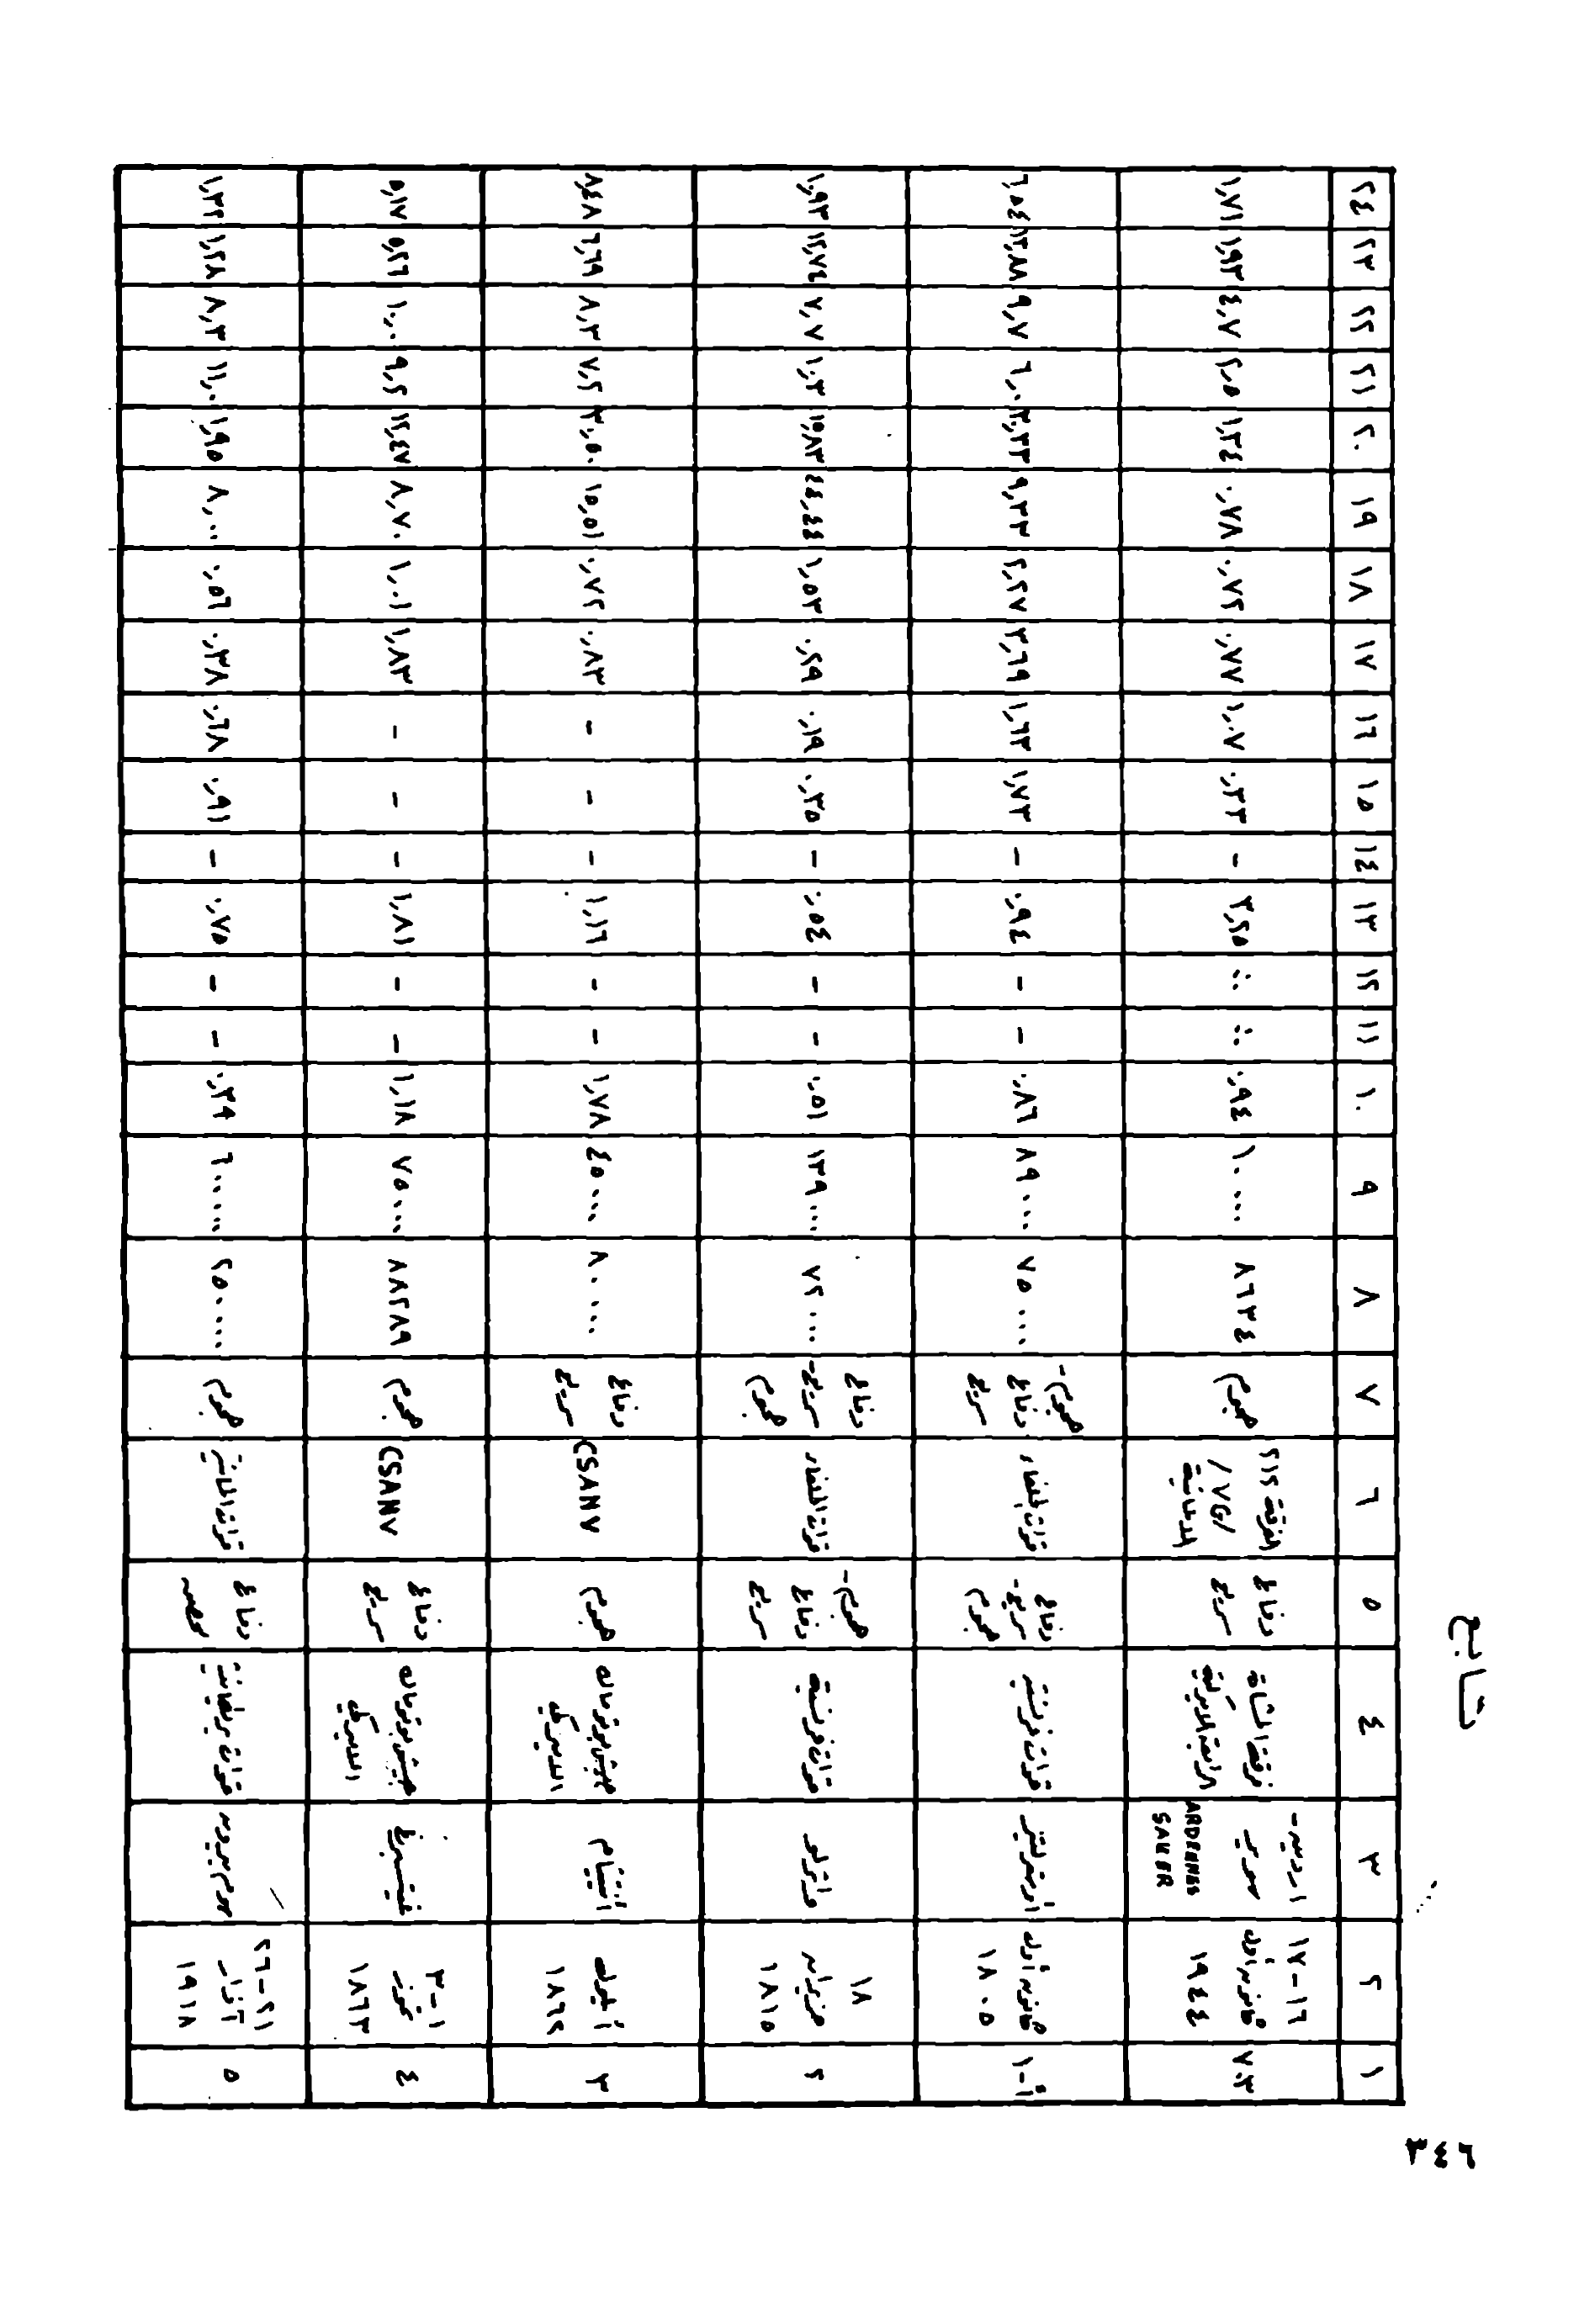 تابع
١ ٢ ٣ ٤ ٥ ٦ ٧ ٨ ٩ ١٠ ١١ ١٢ ١٣ ١٤ ١٥ ١٦ ١٧ ١٨ ١٩ ٢٠ ٢١ ٢٢ ٢٣ ٢٤
٧٠٣ ١٦-١٧ كانون أول ١٩٤٤ اردين - سوير ARDENNES SAUER فرقة المشاة الرابعة الاميركية دفاع سريع الفرقة ٢١٢ /VG/ الالمانية هجوم ٨٦٣٤ ١٠٠٠٠ ٠,٩٤ ∴ ∴ ٣,٢٥ - ٠,٣٣ ١,٠٧ ٠,٧٧ ٠,٧٢ ٠,٧٨ ١,٣٤ ٢,٥ ٤,٧ ١,٩٣ ١,٧١
أ-١ كانون أول ١٨٠٥ أوسترليتز قوات فرنسية دفاع سريع - هجوم قوات الحلفاء هجوم - دفاع سريع ٧٥٠٠٠ ٨٩٠٠٠ ٠,٨٦ - - ٠,٩٤ - ١,٧٣ ١,٦٣ ٣,٦٩ ٢,٢٧ ٩,٣٣ ٦,٠ ٩,٧ ١٣,٨٨ ٦,٥٤
٢ ١٨ حزيران ١٨١٥ واترلو قوات فرنسية هجوم - دفاع سريع قوات الحلفاء دفاع سريع - هجوم ٧٢٠٠٠ ١٣٩٠٠٠ ٠,٥١ - - ٠,٥٤ - ٠,٣٥ ٠,١٩ ٠,٢٩ ١,٥٣ ٤٤,٤٤ ١٥,٨٣ ١,٣ ٧,٧ ١٢,٧٤ ١,٩٣
٣ أيلول ١٨٦٢ أنتيتام جيش بوتوماك الاميركي هجوم CSANV دفاع سريع ٨٠٠٠٠ ٤٥٠٠٠ ١,٧٨ - - ١,١٦ - - - ٠,٨٣ ٠,٧٢ ١٥,٥١ ٣٠,٥٠ ٧,٢ ٨,٣ ٦,٦٩ ٨,٤٨
٤ ١-٣ تموز ١٨٦٣ غيتسبرغ جيش بوتوماك الاميركي دفاع سريع CSANV هجوم ٨٨٢٨٩ ٧٥٠٠٠ ١,١٨ - - ١,٨١ - - - ١,٨٣ ١,٠١ ٨,٧٠ ١٢,٤٧ ٩,٢ ١٠,٠ ٥,٢٦ ٥,١٧
٥ ٢١-٢٦ آذار ١٩١٨ سوم/بيرون قوات بريطانية دفاع محصن قوات المانية هجوم ٢٥٠٠٠٠ ٦٠٠٠٠٠ ٠,٣٩ - - ٠,٧٥ - ٠,٩١ ٠,٦٨ ٠,٣٨ ٠,٥٦ ٨,٠٠ ١,٩٥ ١١,٠ ٨,٣ ١,٢٨ ١,٣٩
٣٤٦